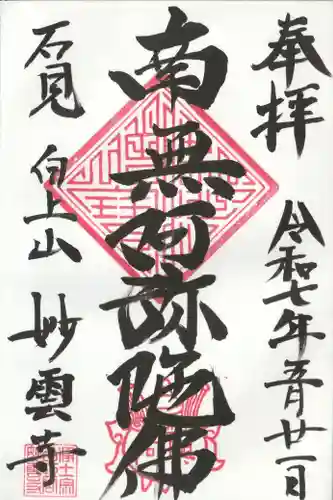 奉拝
令和七年五月廿一日
南無阿弥陀佛
石見
向上山
妙雲寺